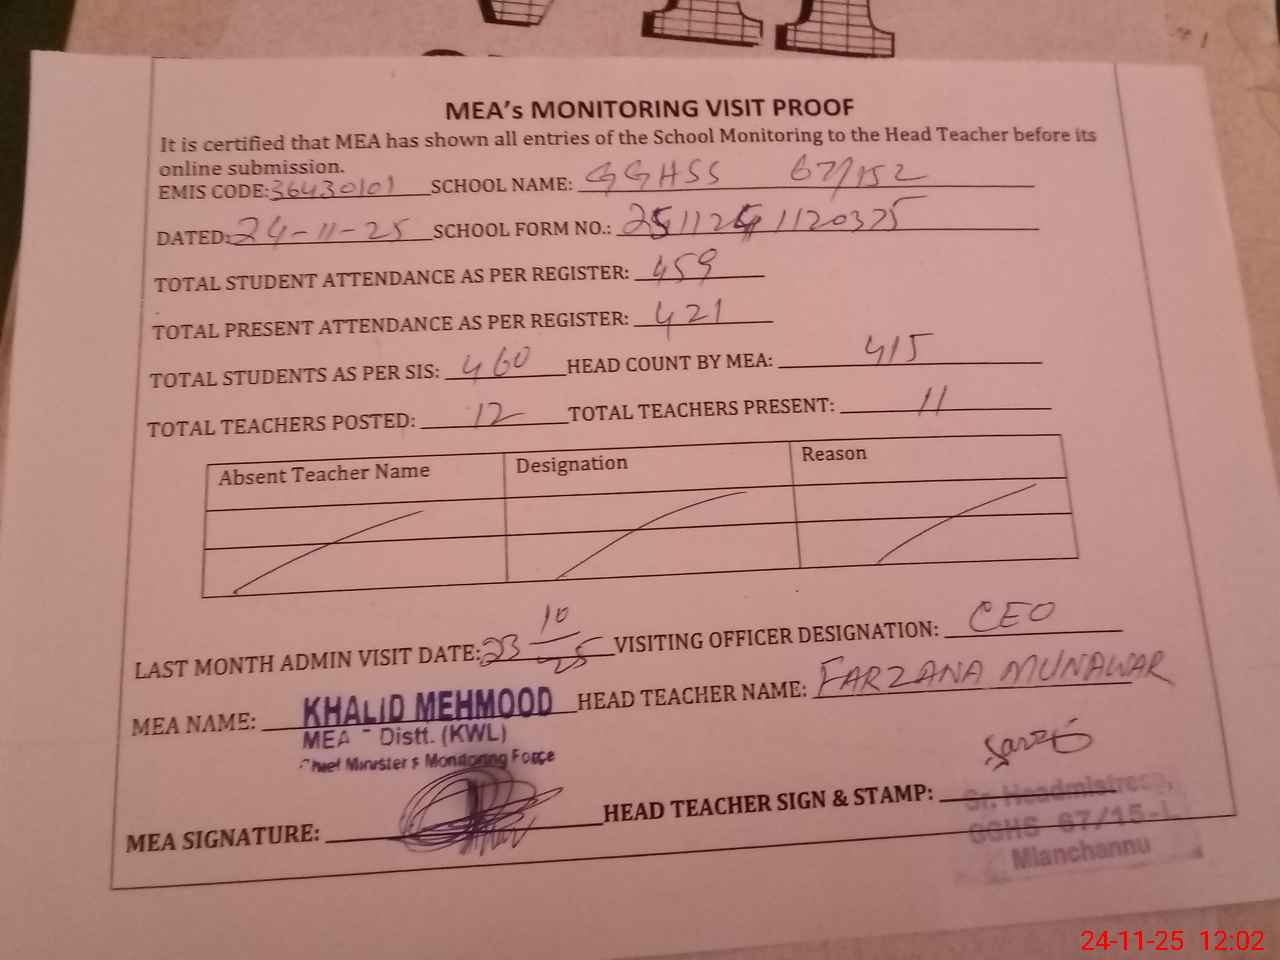 MEA's MONITORING VISIT PROOF
It is certified that MEA has shown all entries of the School Monitoring to the Head Teacher before its
online submission.
EMIS CODE: 36430101 SCHOOL NAME: GGHSS 67/15L
DATED: 24-11-25 SCHOOL FORM NO.: 1120375
TOTAL STUDENT ATTENDANCE AS PER REGISTER: 459
TOTAL PRESENT ATTENDANCE AS PER REGISTER: 421
TOTAL STUDENTS AS PER SIS: 460 HEAD COUNT BY MEA: 415
TOTAL TEACHERS POSTED: 12 TOTAL TEACHERS PRESENT: 11
Absent Teacher Name Designation Reason
LAST MONTH ADMIN VISIT DATE: 23 10 25 VISITING OFFICER DESIGNATION: CEO
MEA NAME: KHALID MEHMOOD HEAD TEACHER NAME: FARZANA MUNAWAR
MEA - Distt. (KWL)
Chief Minister's Monitoring Force
MEA SIGNATURE: HEAD TEACHER SIGN & STAMP:
Sr. Headmistress,
GGHS 67/15-L
Mianchannu
24-11-25 12:02